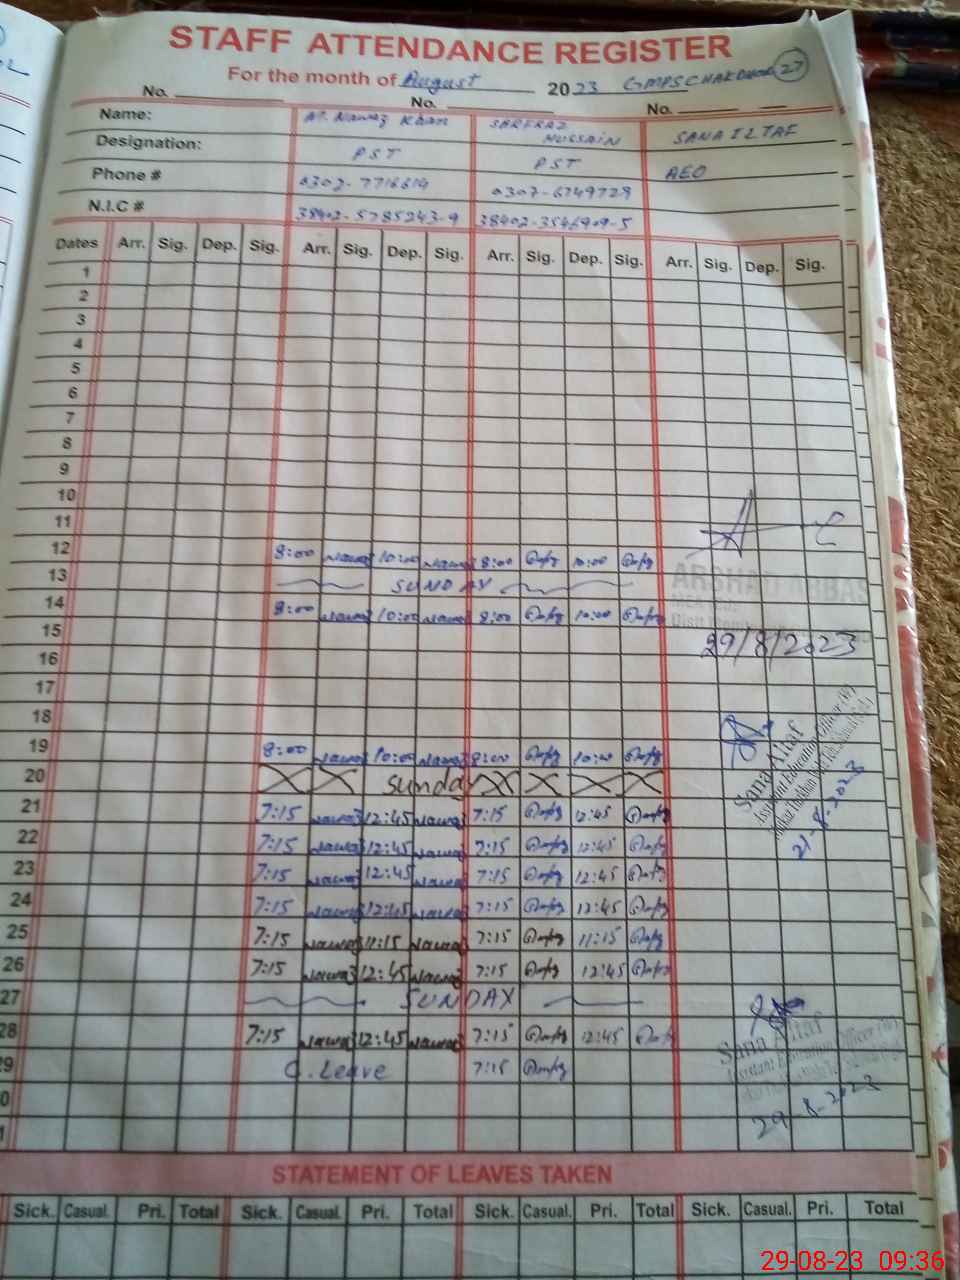 STAFF ATTENDANCE REGISTER
For the month of August 2023 GMPSCHAK 27
No. No. No.
Name: M. Nawaz Khan SARFRAZ HUSSAIN SANA ILTAF
Designation: PST PST AEO
Phone # 0307-6749729
N.I.C # 38402-5785243-9 38402-3546909-5
Dates Arr. Sig. Dep. Sig. Arr. Sig. Dep. Sig. Arr. Sig. Dep. Sig. Arr. Sig. Dep. Sig.
1
2
3
4
5
6
7
8
9
10
11
12 8:00 Nawaz 10:00 Nawaz 8:00 10:00
13 SUNDAY
ARSHAD ABBAS
14 8:00 Nawaz 10:00 Nawaz 8:00 10:00
15
29/8/2023
16
17
18
19 8:00 Nawaz 10:00 Nawaz 8:00 10:00
20 Sunday
Sana Altaf
Assistant Education Officer (W)
21-8-2023
21 7:15 Nawaz 12:45 Nawaz 7:15 12:45
22 7:15 Nawaz 12:45 Nawaz 7:15 12:45
23 7:15 Nawaz 12:45 Nawaz 7:15 12:45
24 7:15 Nawaz 12:45 Nawaz 7:15 12:45
25 7:15 Nawaz 11:15 Nawaz 7:15 11:15
26 7:15 Nawaz 12:45 Nawaz 7:15 12:45
27 SUNDAY
28 7:15 Nawaz 12:45 Nawaz 7:15 12:45
Sana Altaf
Assistant Education Officer (W)
29-8-2023
9 C. Leave 7:15
0
1
STATEMENT OF LEAVES TAKEN
Sick. Casual. Pri. Total Sick. Casual. Pri. Total Sick. Casual. Pri. Total Sick. Casual. Pri. Total
29-08-23 09:36